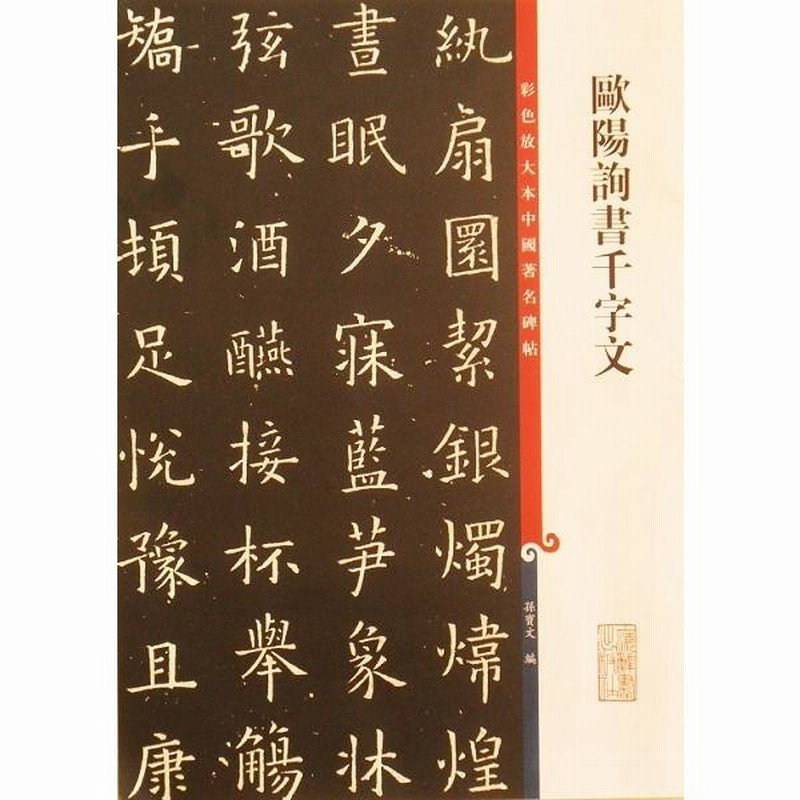 歐陽詢書千字文
彩色放大本中國著名碑帖
孫寶文 編
紈扇圎絜銀燭煒煌
晝眠夕寐藍笋象牀
弦歌酒醼接杯舉觴
矯手頓足悅豫且康